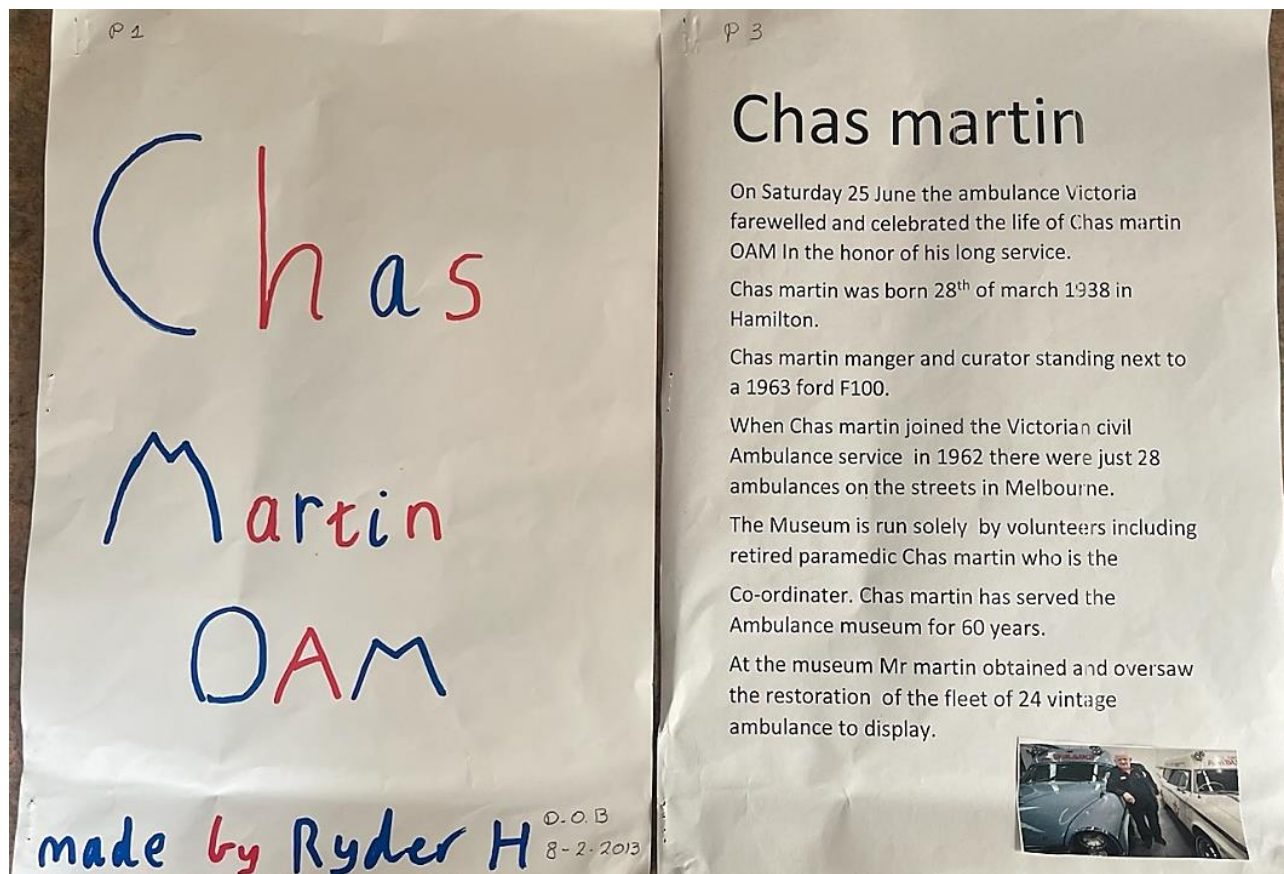 P 1
Chas
Martin
OAM
made by Ryder H
D.O.B
8-2-2013
P 3
Chas martin
On Saturday 25 June the ambulance Victoria
farewelled and celebrated the life of Chas martin
OAM In the honor of his long service.
Chas martin was born 28th of march 1938 in
Hamilton.
Chas martin manger and curator standing next to
a 1963 ford F100.
When Chas martin joined the Victorian civil
Ambulance service in 1962 there were just 28
ambulances on the streets in Melbourne.
The Museum is run solely by volunteers including
retired paramedic Chas martin who is the
Co-ordinater. Chas martin has served the
Ambulance museum for 60 years.
At the museum Mr martin obtained and oversaw
the restoration of the fleet of 24 vintage
ambulance to display.